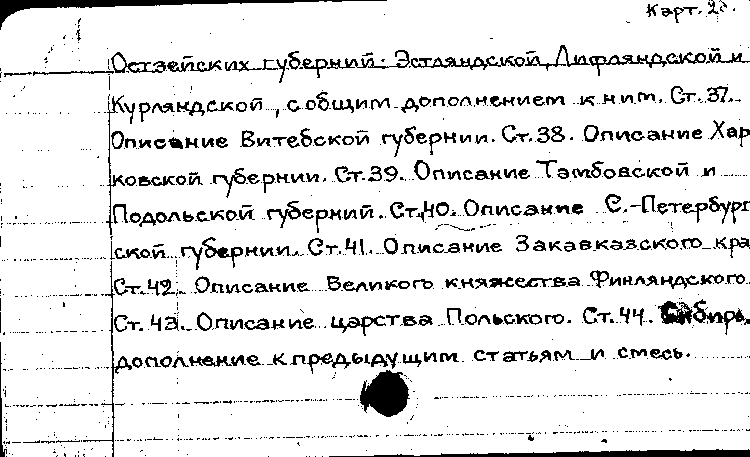 Карт. 28.
Остзейских губерний: Эстляндской, Лифляндской и
Курляндской, с общим дополнением к ним. Ст. 37.
Описание Витебской губернии. Ст. 38. Описание Хар
ковской губернии. Ст. 39. Описание Тамбовской и
Подольской губерний. Ст. 40. Описание С.-Петербург
ской губернии. Ст. 41. Описание Закавказского кра
Ст. 42. Описание Великого княжества Финляндского.
Ст. 43. Описание царства Польского. Ст. 44. Сибирь,
дополнение к предыдущим статьям и смесь.